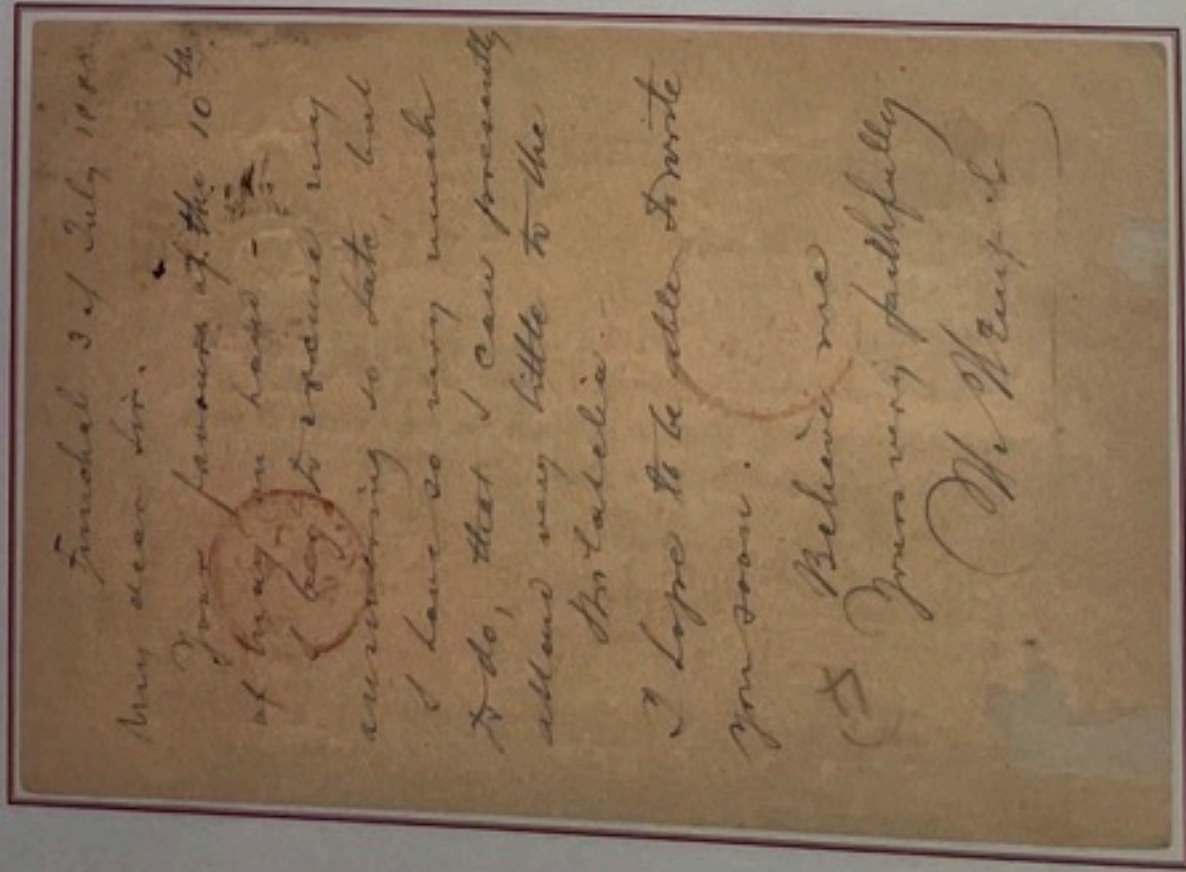 Funchal 3 of July
My dear Sir.
Your favour of the 10th
of May in hand -
I beg to excuse my
answering so late, but
I have so very much
to do, that I can presently
attend very little to the
Philatelie.
I hope to be able to write
you soon.
Believe me
Yours very faithfully